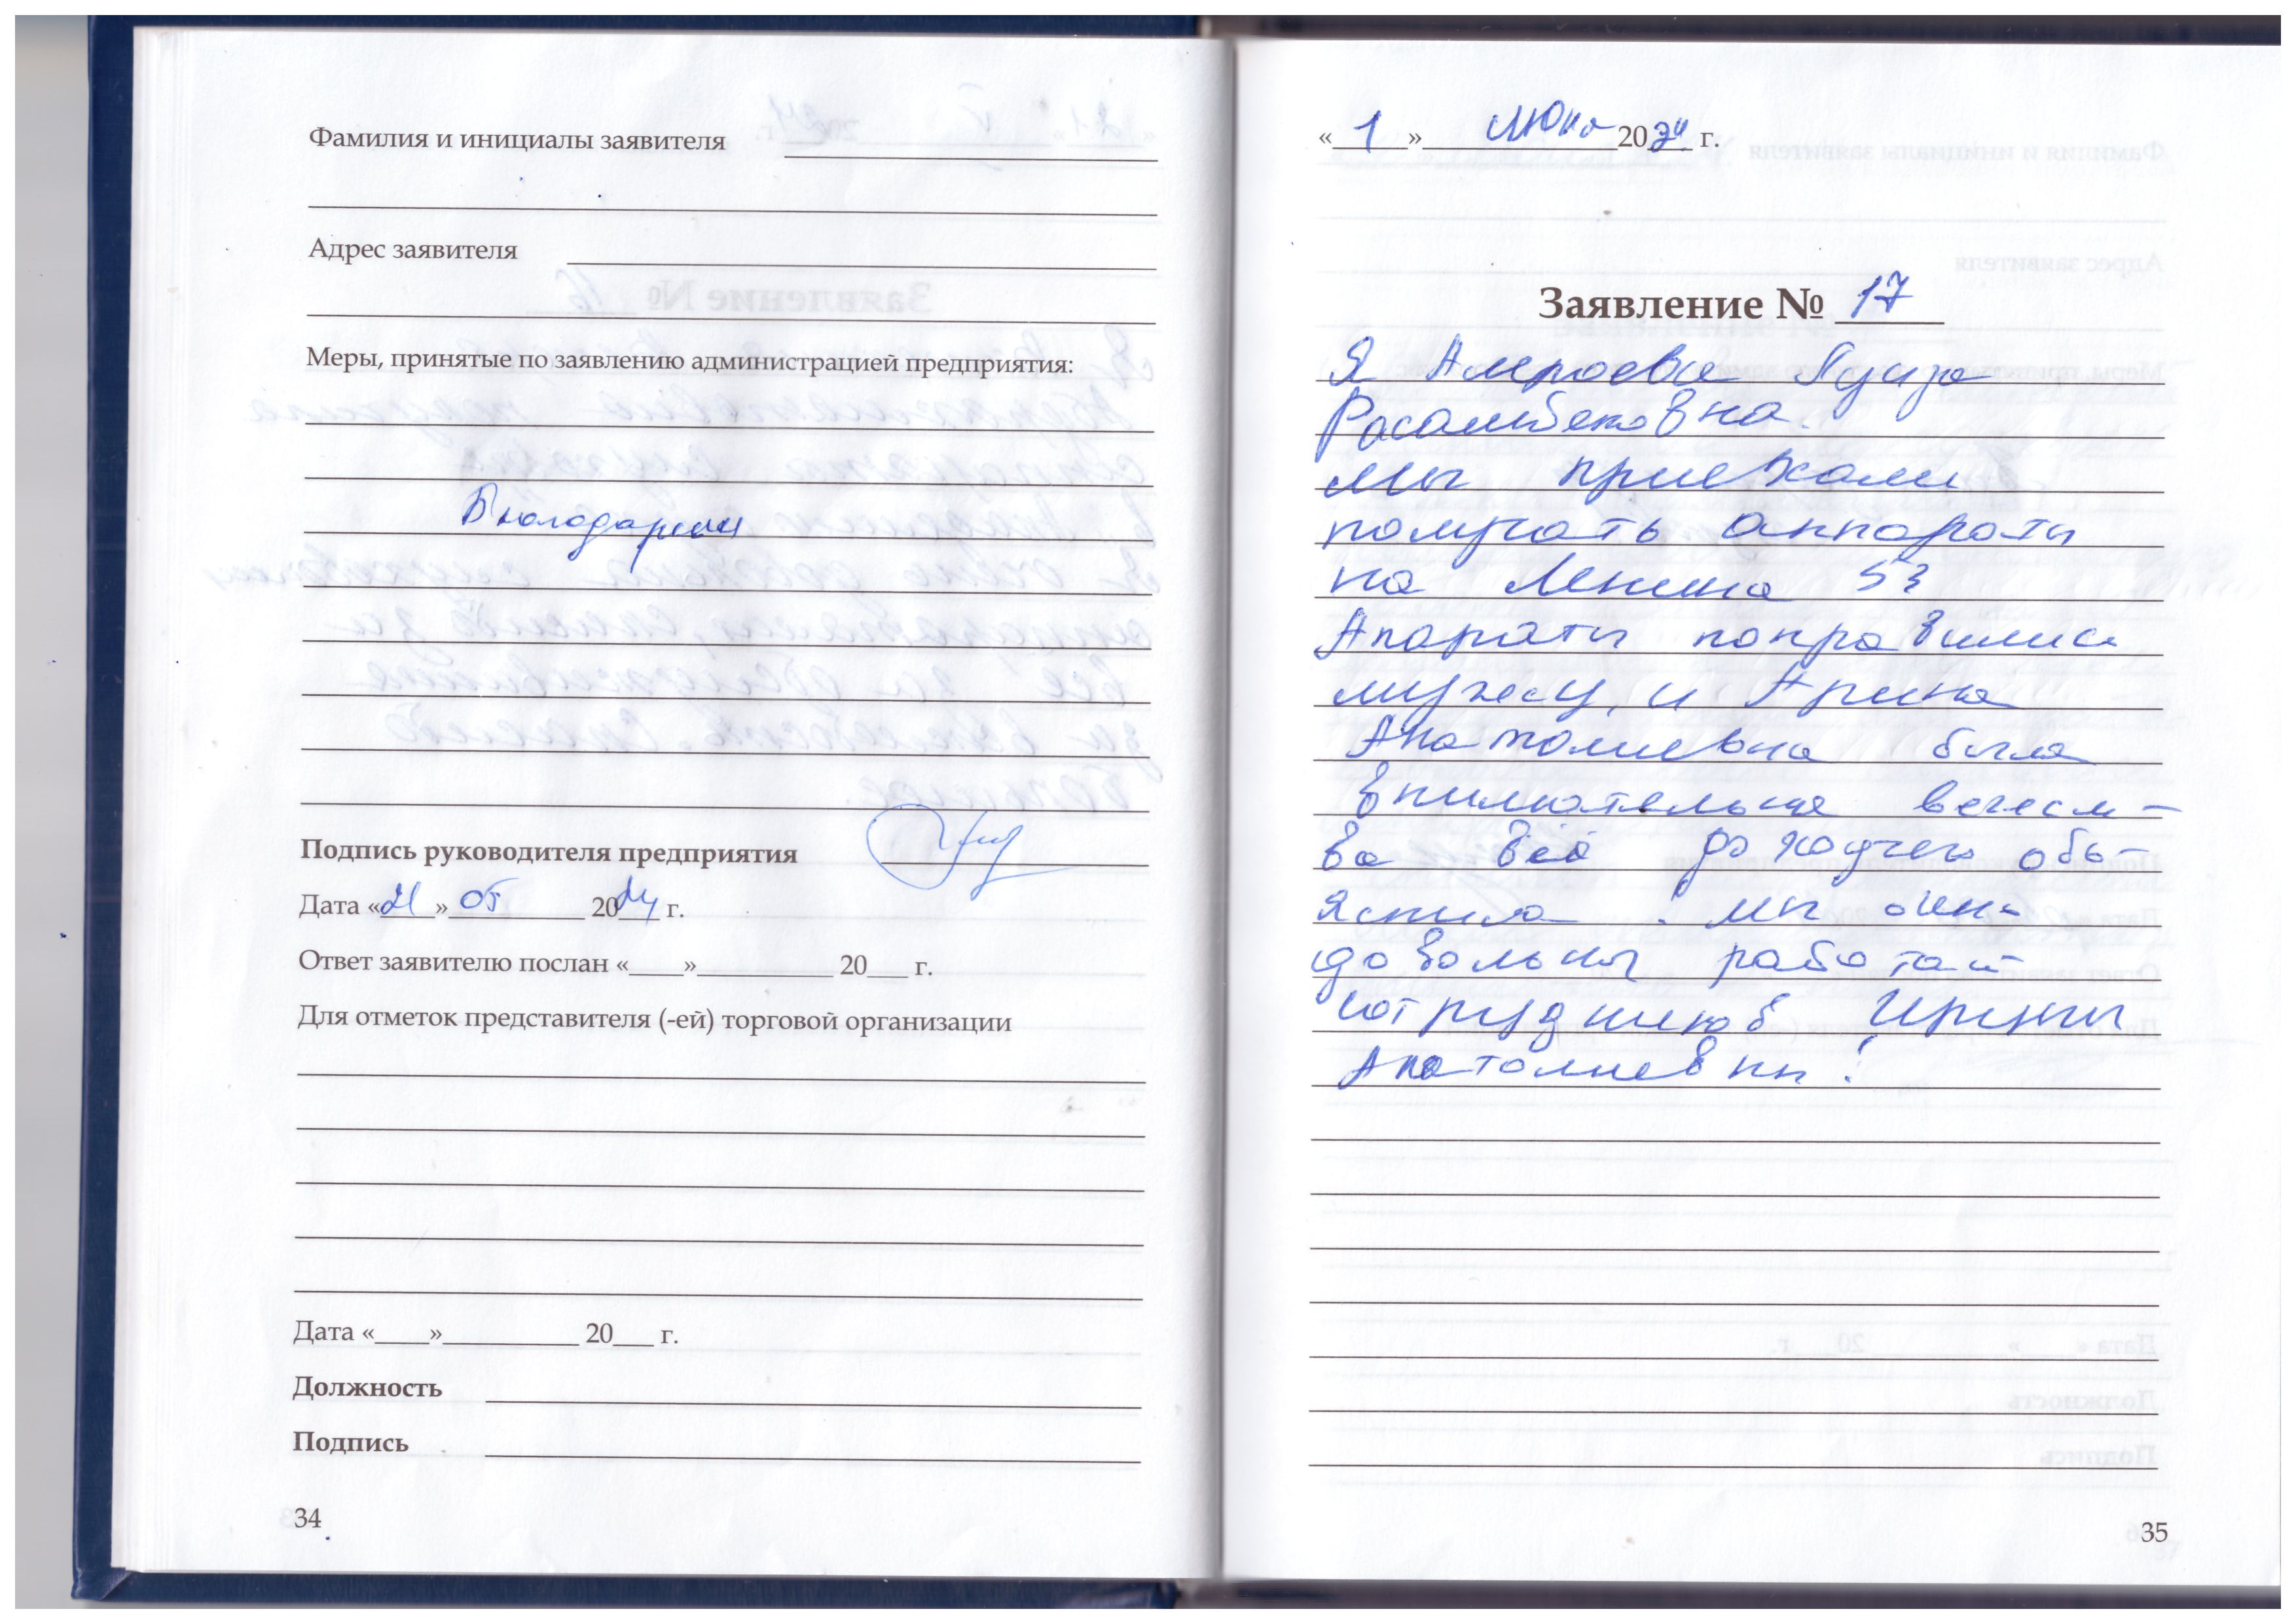 Фамилия и инициалы заявителя
Адрес заявителя
Меры, принятые по заявлению администрацией предприятия:
Благодарим
Подпись руководителя предприятия
Дата «21» 05 2024 г.
Ответ заявителю послан «____»__________ 20___ г.
Для отметок представителя (-ей) торговой организации
Дата «____»__________ 20___ г.
Должность
Подпись
34
«1» Июнь 2024 г.
Заявление № 17
Я
мы приехали
получать аппараты
на Ленина 53
Апараты понравились
мужу, и Арина
Анатолиевна была
внимательна вежли-
ва всё доходчего объ-
яснила. мы очень
довольны работай
сотрудников Ирины
Анатолиевны!
35